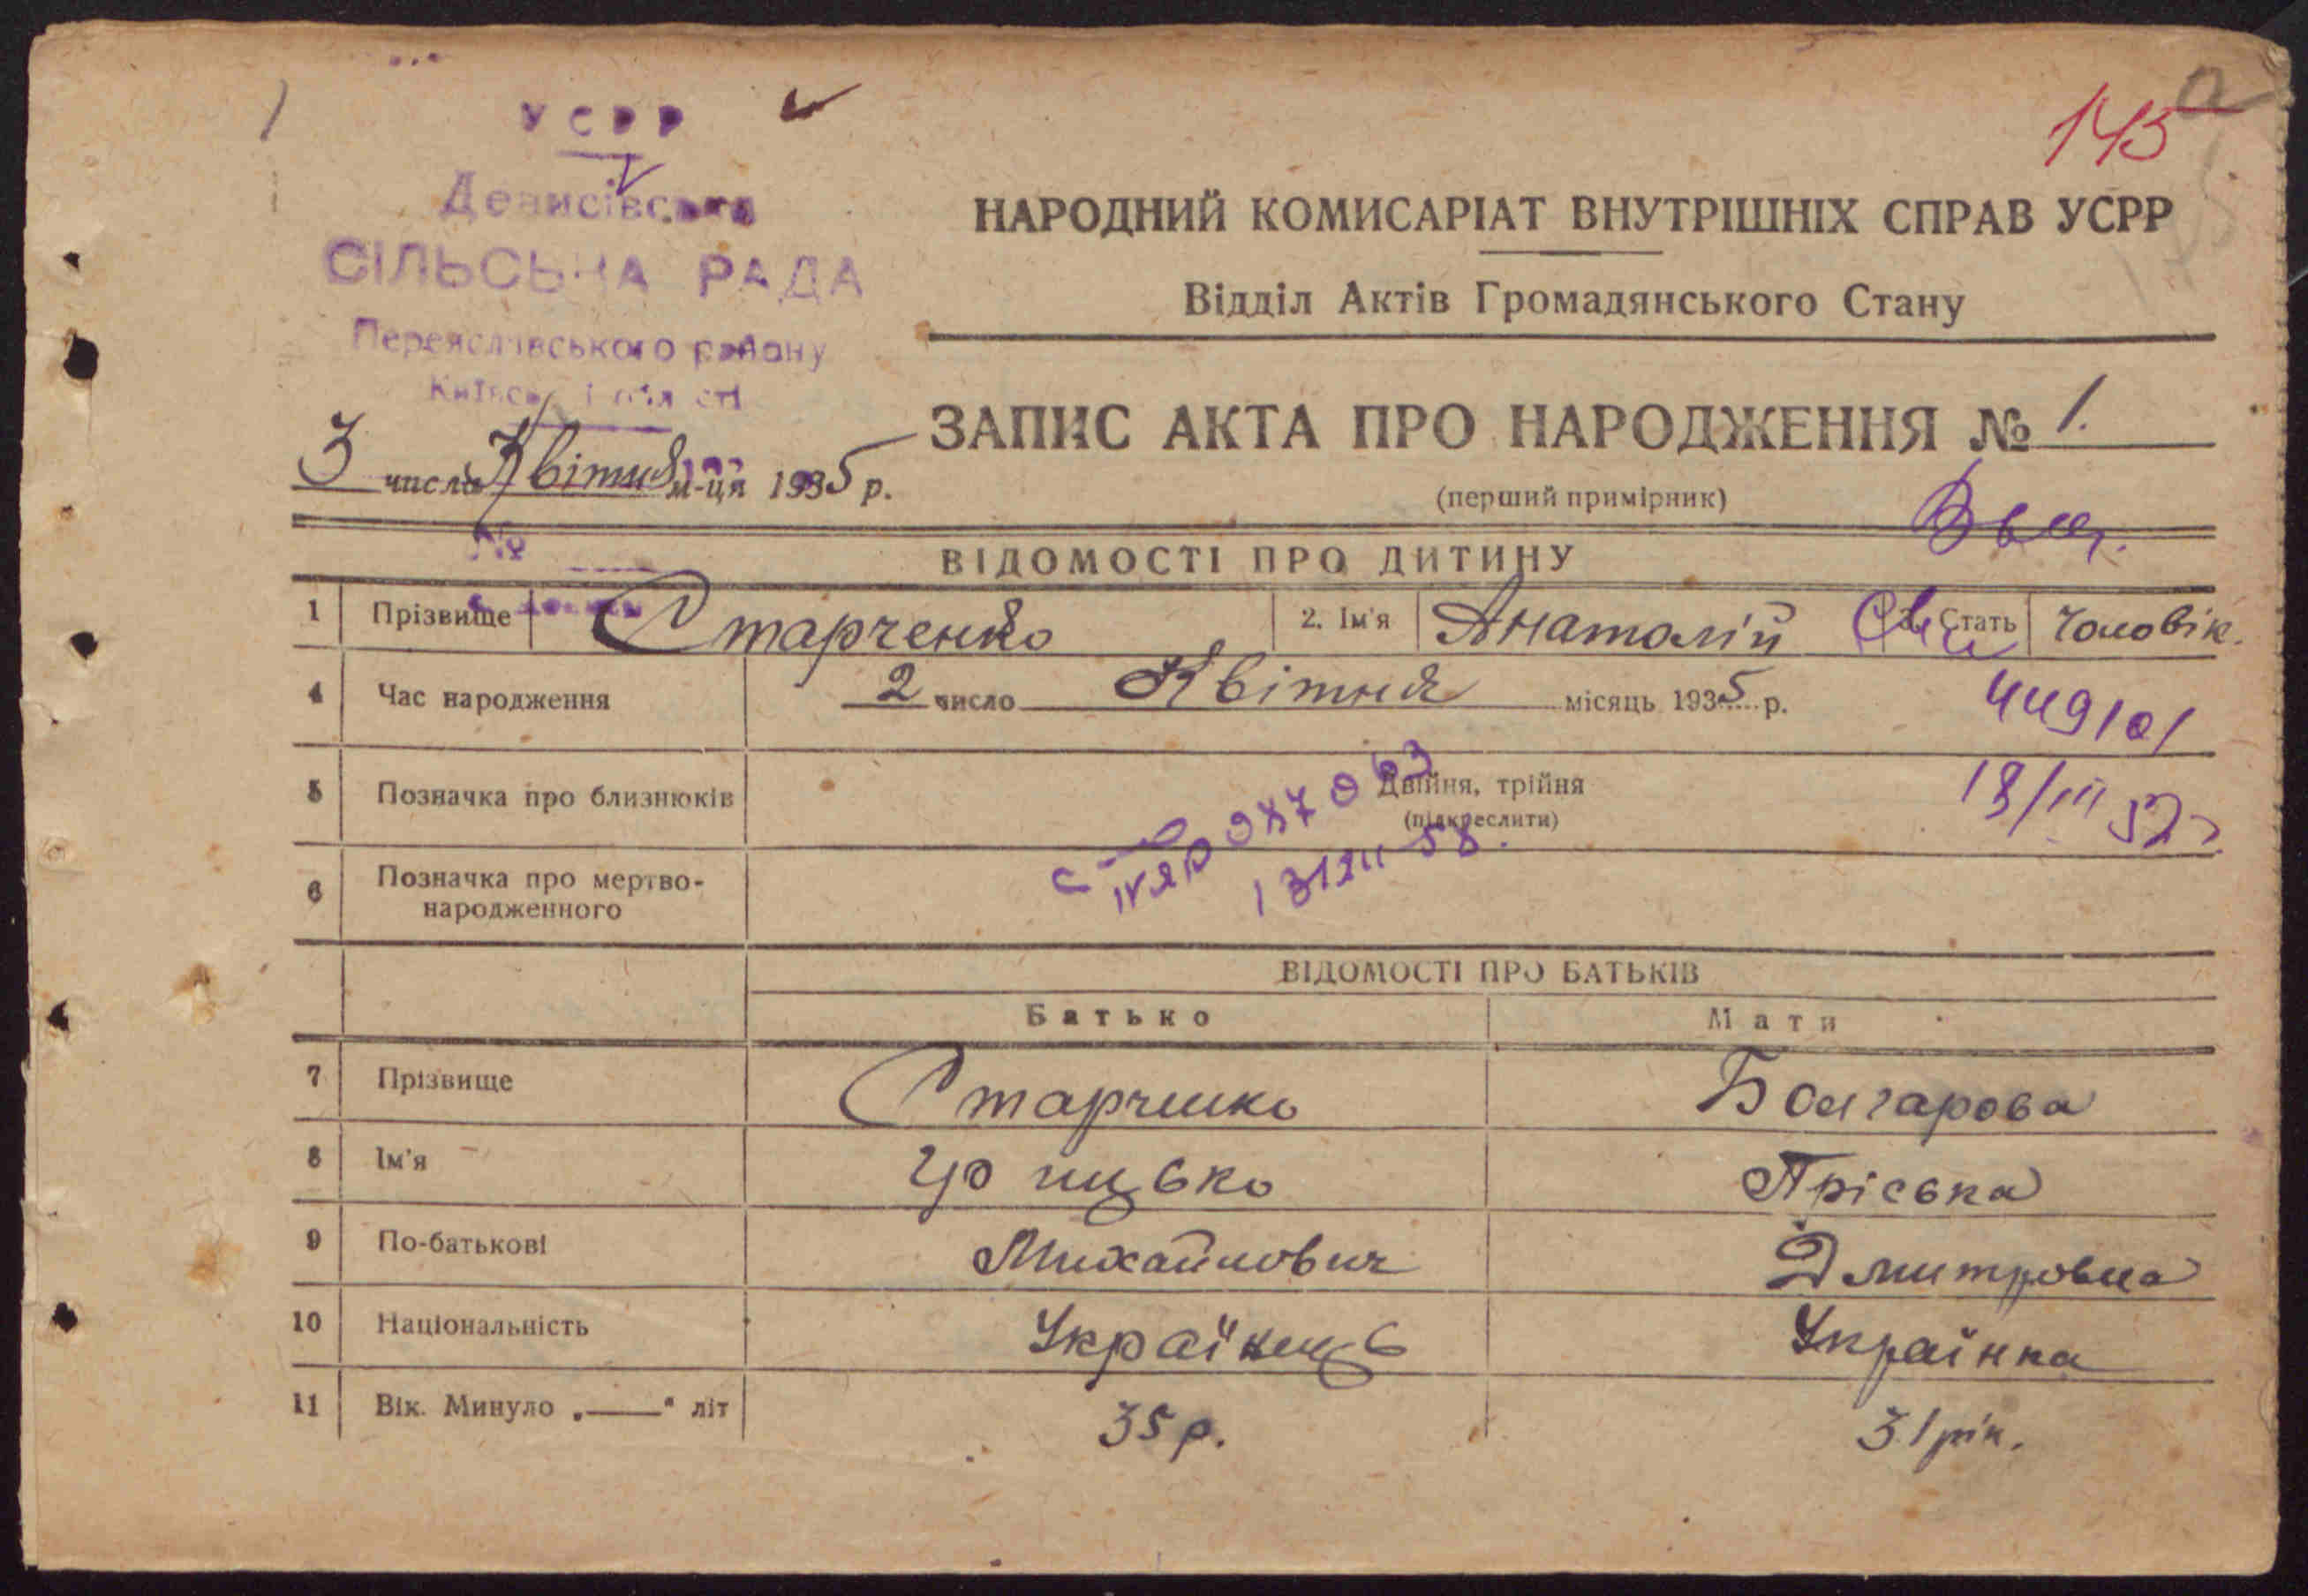 УСРР
Денисівська
СІЛЬСЬКА РАДА
Переяславського району
Київської області
145
НАРОДНИЙ КОМИСАРІАТ ВНУТРІШНІХ СПРАВ УСРР
Відділ Актів Громадянського Стану
ЗАПИС АКТА ПРО НАРОДЖЕННЯ № 1.
3 числа Квітня м-ця 1935 р.
(перший примірник)
№
ВІДОМОСТІ ПРО ДИТИНУ
1 Прізвище Старченко 2. Ім'я Анатолій 3. Стать Чоловік.
4 Час народження 2 число Квітня місяць 1935 р.
449101
5 Позначка про близнюків Двійня, трійня
(підкреслити)
18/III 52 г
6 Позначка про мертво-
народженного
ВІДОМОСТІ ПРО БАТЬКІВ
Батько Мати
7 Прізвище Старченко Болгарова
8 Ім'я Пріська
9 По-батькові Михайлович Дмитровна
10 Національність Українець Українка
11 Вік. Минуло „——“ літ 35 р. 31 рік.